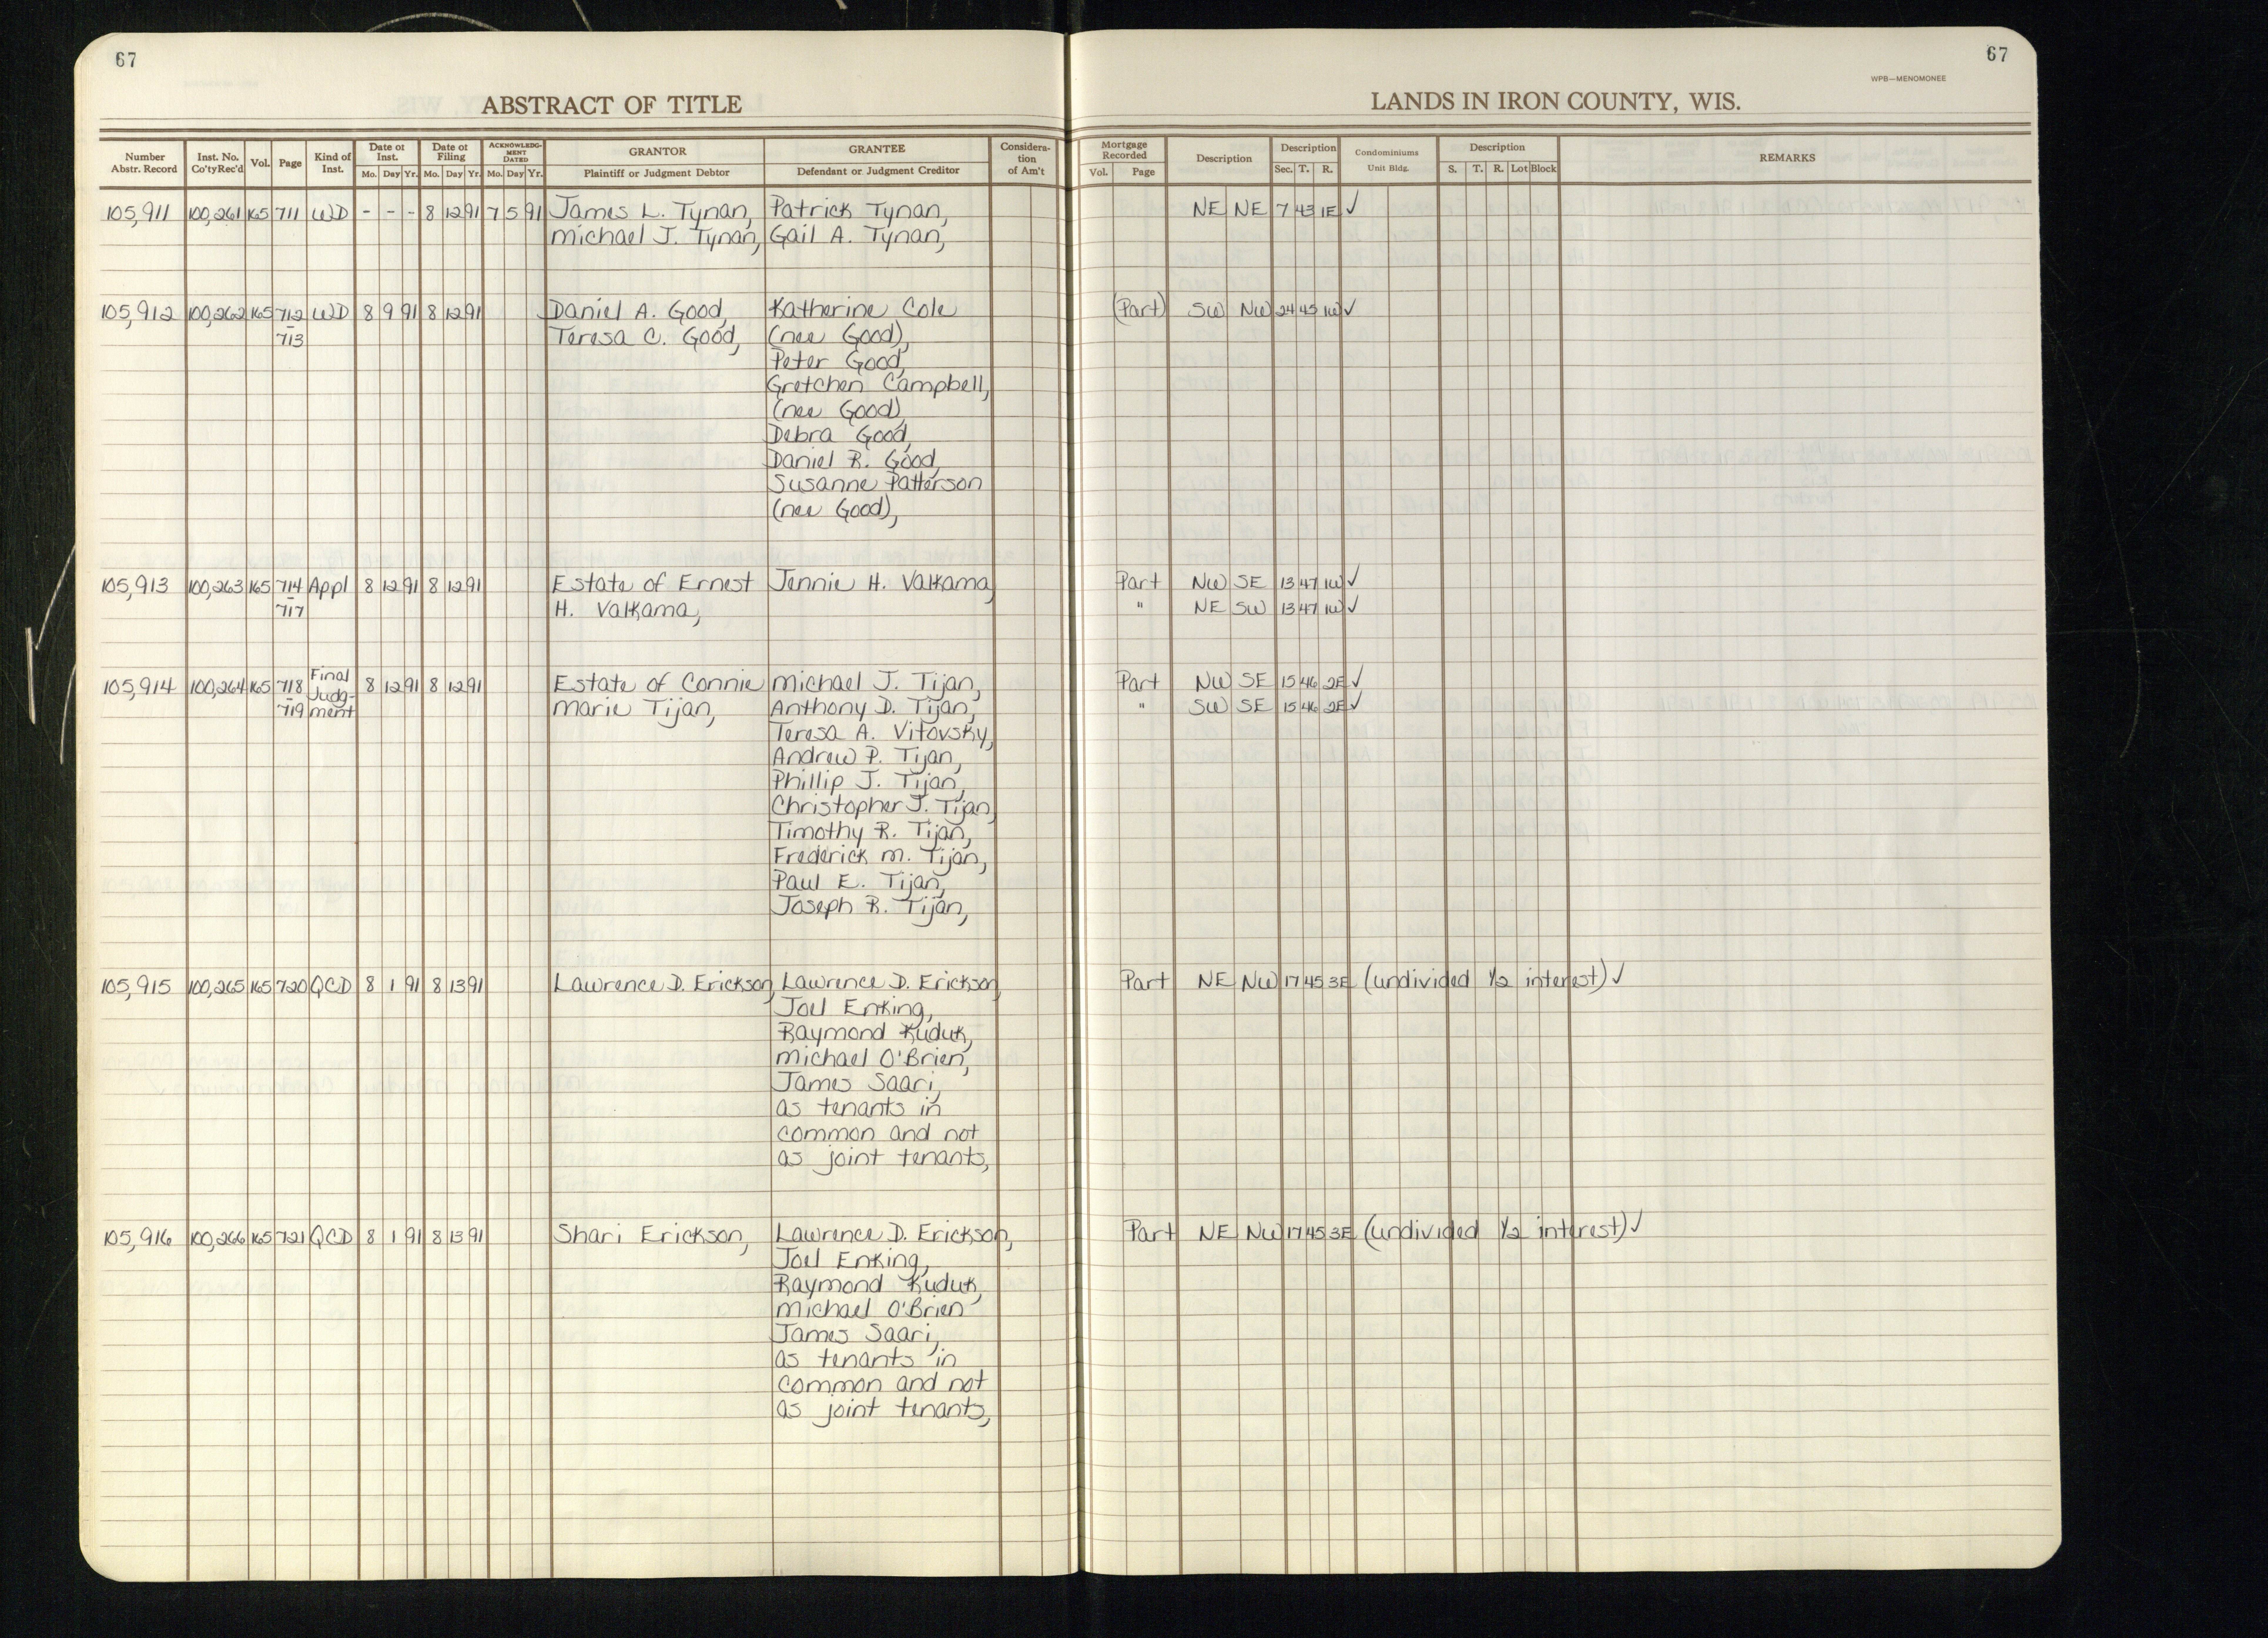 67
67
WPB—MENOMONEE
ABSTRACT OF TITLE
LANDS IN IRON COUNTY, WIS.
Number Abstr. Record | Inst. No. Co'ty Rec'd | Vol. | Page | Kind of Inst. | Date of Inst. Mo. Day Yr. | Date of Filing Mo. Day Yr. | ACKNOWLEDGMENT DATED Mo. Day Yr. | GRANTOR Plaintiff or Judgment Debtor | GRANTEE Defendant or Judgment Creditor | Consideration of Am't | Mortgage Recorded Vol. Page | Description | Description Sec. T. R. | Condominiums Unit Bldg. | Description S. T. R. Lot Block | REMARKS
105,911 100,261 165 711 WD - - - 8 12 91 7 5 91 James L. Tynan, Patrick Tynan, NE NE 7 43 1E ✓
Michael J. Tynan, Gail A. Tynan,
105,912 100,262 165 712 WD 8 9 91 8 12 91 Daniel A. Good, Katherine Cole (Part) SW NW 24 45 1W ✓
- 713 Teresa C. Good, (nee Good),
Peter Good,
Gretchen Campbell,
(nee Good)
Debra Good,
Daniel R. Good,
Susanne Patterson
(nee Good),
105,913 100,263 165 714 Appl 8 12 91 8 12 91 Estate of Ernest Jennie H. Valkama, Part NW SE 13 47 1W ✓
- 717 H. Valkama, " NE SW 13 47 1W ✓
105,914 100,264 165 718 Final Judg- 8 12 91 8 12 91 Estate of Connie Michael J. Tijan, Part NW SE 15 46 2E ✓
- 719 ment Marie Tijan, Anthony D. Tijan, " SW SE 15 46 2E ✓
Teresa A. Vitovsky,
Andrew P. Tijan,
Phillip J. Tijan,
Christopher J. Tijan,
Timothy R. Tijan,
Frederick M. Tijan,
Paul E. Tijan,
Joseph R. Tijan,
105,915 100,265 165 720 QCD 8 1 91 8 13 91 Lawrence D. Erickson, Lawrence D. Erickson, Part NE NW 17 45 3E (undivided 1/2 interest) ✓
Joel Enking,
Raymond Kuduk,
Michael O'Brien,
James Saari,
as tenants in
common and not
as joint tenants,
105,916 100,266 165 721 QCD 8 1 91 8 13 91 Shari Erickson, Lawrence D. Erickson, Part NE NW 17 45 3E (undivided 1/2 interest) ✓
Joel Enking,
Raymond Kuduk,
Michael O'Brien
James Saari,
as tenants in
common and not
as joint tenants,